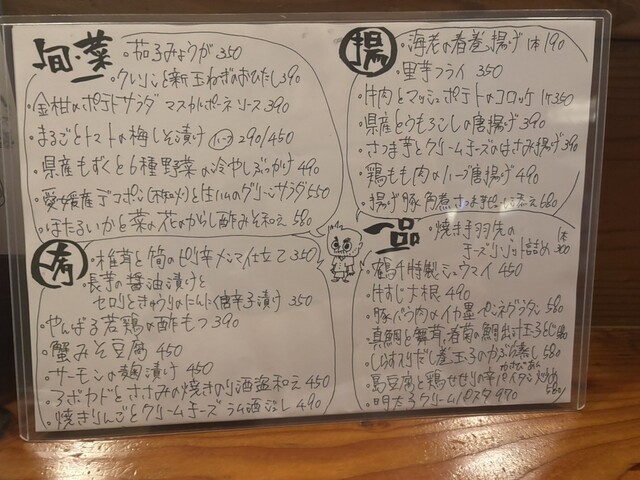 旬菜
・茄子みょうが 350
・クレソンと新玉ねぎのおひたし 390
・金柑のポテトサラダ マスカルポーネソース 390
・まるごとトマトの梅しそ漬け ハーフ 290/450
・県産もずくと6種野菜の冷やしぶっかけ 490
・愛媛産デコポンと生ハムのグリーンサラダ 550
・ほたるいかと菜の花のからし酢みそ和え 580
・椎茸と筍のピリ辛メンマ仕立て 350
・長芋の醤油漬けと
セロリときゅうりのにんにく唐辛子漬け 350
・やんばる若鶏の酢もつ 390
・蟹みそ豆腐 450
・サーモンの麹漬け 450
・アボカドとささみの焼きのり酒盗和え 450
・焼きりんごとクリームチーズ ラム酒ジュレ 490
揚
・海老の春巻揚げ 1本 190
・里芋フライ 350
・牛肉とマッシュポテトのコロッケ 1ケ 350
・県産とうもろこしの唐揚げ 390
・さつま芋とクリームチーズのはさみ揚げ 390
・鶏もも肉のハーブ唐揚げ 490
・揚げ豚角煮 さつま芋 添え 680
一品
・焼き手羽先の
チーズリゾット詰め 1本 300
・特製シュウマイ 450
・牛すじ大根 490
・豚バラ肉のイカ墨ペンネグラタン 580
・真鯛と舞茸、春菊の鯛出汁玉子とじ
・しらすと 玉子のかぶら蒸し 580
・島豆腐と鶏せせりの辛 炒め 580
・明太子クリームパスタ 970